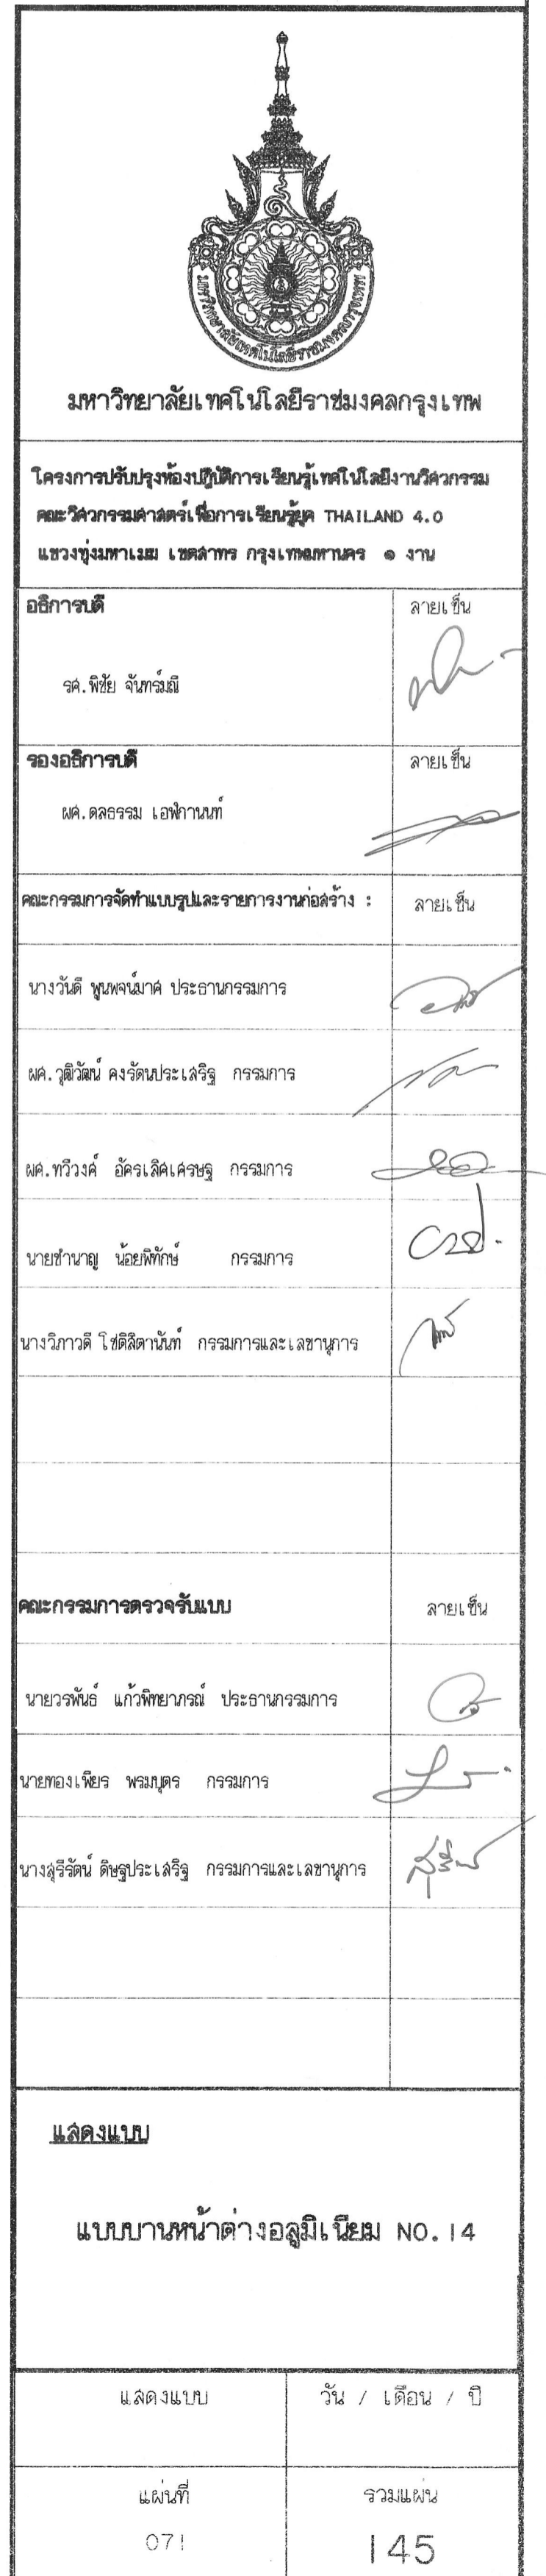 มหาวิทยาลัยเทคโนโลยีราชมงคลกรุงเทพ
มหาวิทยาลัยเทคโนโลยีราชมงคลกรุงเทพ
โครงการปรับปรุงห้องปฏิบัติการเรียนรู้เทคโนโลยีงานวิศวกรรม
คณะวิศวกรรมศาสตร์เพื่อการเรียนรู้ยุค THAILAND 4.0
แขวงทุ่งมหาเมฆ เขตสาทร กรุงเทพมหานคร ๑ งาน
อธิการบดี ลายเซ็น
รศ.พิชัย จันทร์มณี
รองอธิการบดี ลายเซ็น
ผศ.ดลธรรม เอฬกานนท์
คณะกรรมการจัดทำแบบรูปและรายการงานก่อสร้าง : ลายเซ็น
นางวันดี พูนพจน์มาศ ประธานกรรมการ
ผศ.วุฒิวัฒน์ คงรัตนประเสริฐ กรรมการ
ผศ.ทวีวงค์ อัครเลิศเศรษฐ กรรมการ
นายชำนาญ น้อยพิทักษ์ กรรมการ
นางวิภาวดี โชติลิตานันท์ กรรมการและเลขานุการ
คณะกรรมการตรวจรับแบบ ลายเซ็น
นายวรพันธ์ แก้วพิทยาภรณ์ ประธานกรรมการ
นายทองเพียร พรมบุตร กรรมการ
นางสุรีรัตน์ ดิษฐประเสริฐ กรรมการและเลขานุการ
แสดงแบบ
แบบบานหน้าต่างอลูมิเนียม NO.14
แสดงแบบ วัน / เดือน / ปี
แผ่นที่ รวมแผ่น
071 145